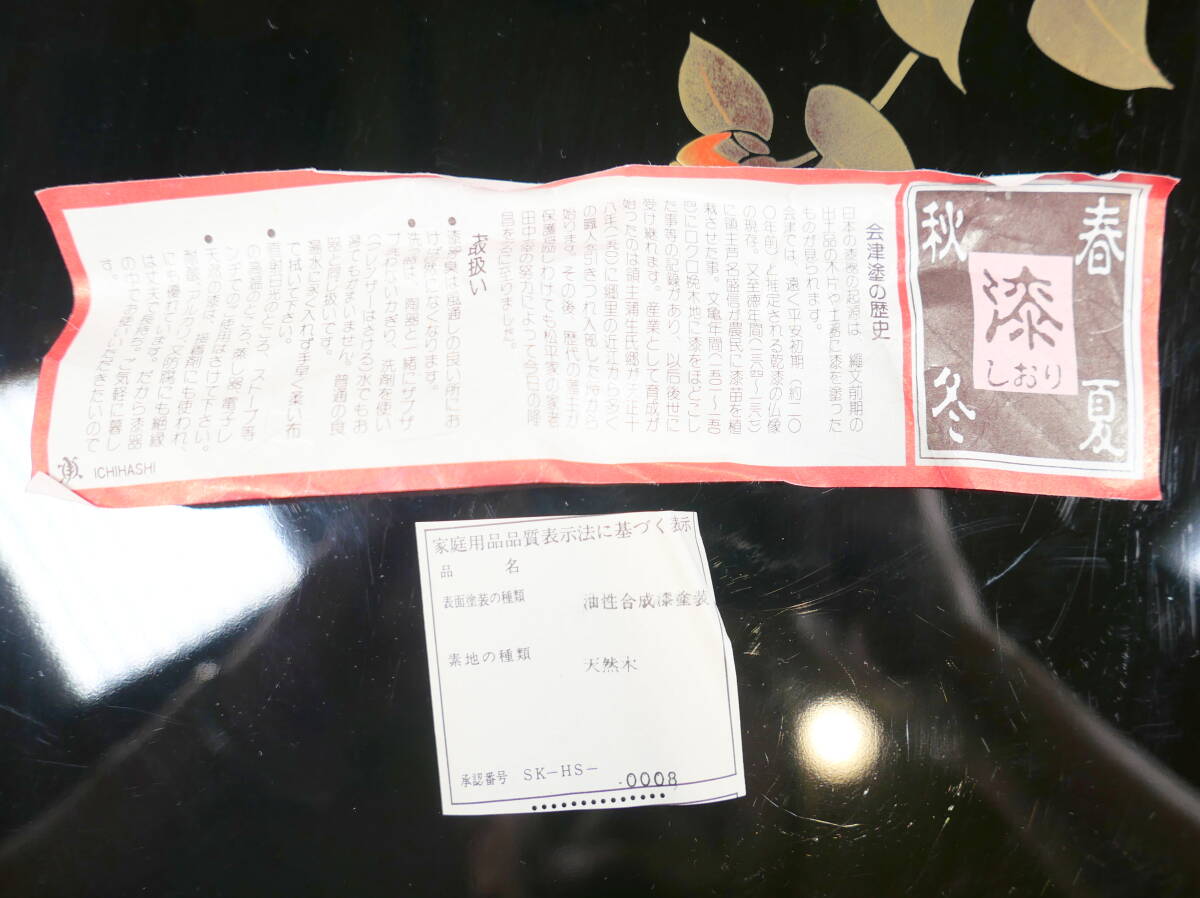 春
夏
秋
冬
漆
しおり
会津塗の歴史
日本の漆器の起源は、縄文前期の
出土品の木片や土器に漆を塗った
ものが見られます。
会津では、遠く平安初期（約一二〇
〇年前）と推定される乾漆の仏像
の現存、又至徳年間
に領主芦名盛信が農民に漆苗を植
栽させた事。文亀年間
にロクロ挽木地に漆をほどこし
た事等の記録があり、以后後世に
受け継れます。産業として育成が
始ったのは領主蒲生氏郷が天正十
八年に郷里の近江から多く
の職人を引きつれ入部した時から
始ります。その後、歴代の藩主が
保護奨励しわけても松平家の家老
田中玄宰の努力によって今日の隆
昌をみるに至りました。
取扱い
漆器類は風通しの良い所にお
けば臭いはなくなります。
陶器と一緒にザブザ
ブまわないかぎり、洗剤を使い
（クレンザーはさける）水でもお
湯でもかまいません。普通の食
器と同じ扱いです。
湯水に永く入れず手早く柔い布
で拭いて下さい。
直射日光のところ、ストーブ等
の高熱のところ、蒸し器、電子レ
ンヂでのご使用はさけて下さい。
天然の漆は、接着剤にも使われ、
耐
も優れ、又防腐にも絶縁
は丈夫で長持ち。だから漆器
ご気軽に暮し
の中でお使いいただきたいので
す。
ICHIHASHI
家庭用品品質表示法に基づく表示
品名
表面塗装の種類 油性合成漆塗装
素地の種類 天然木
承認番号 SK-HS-0008